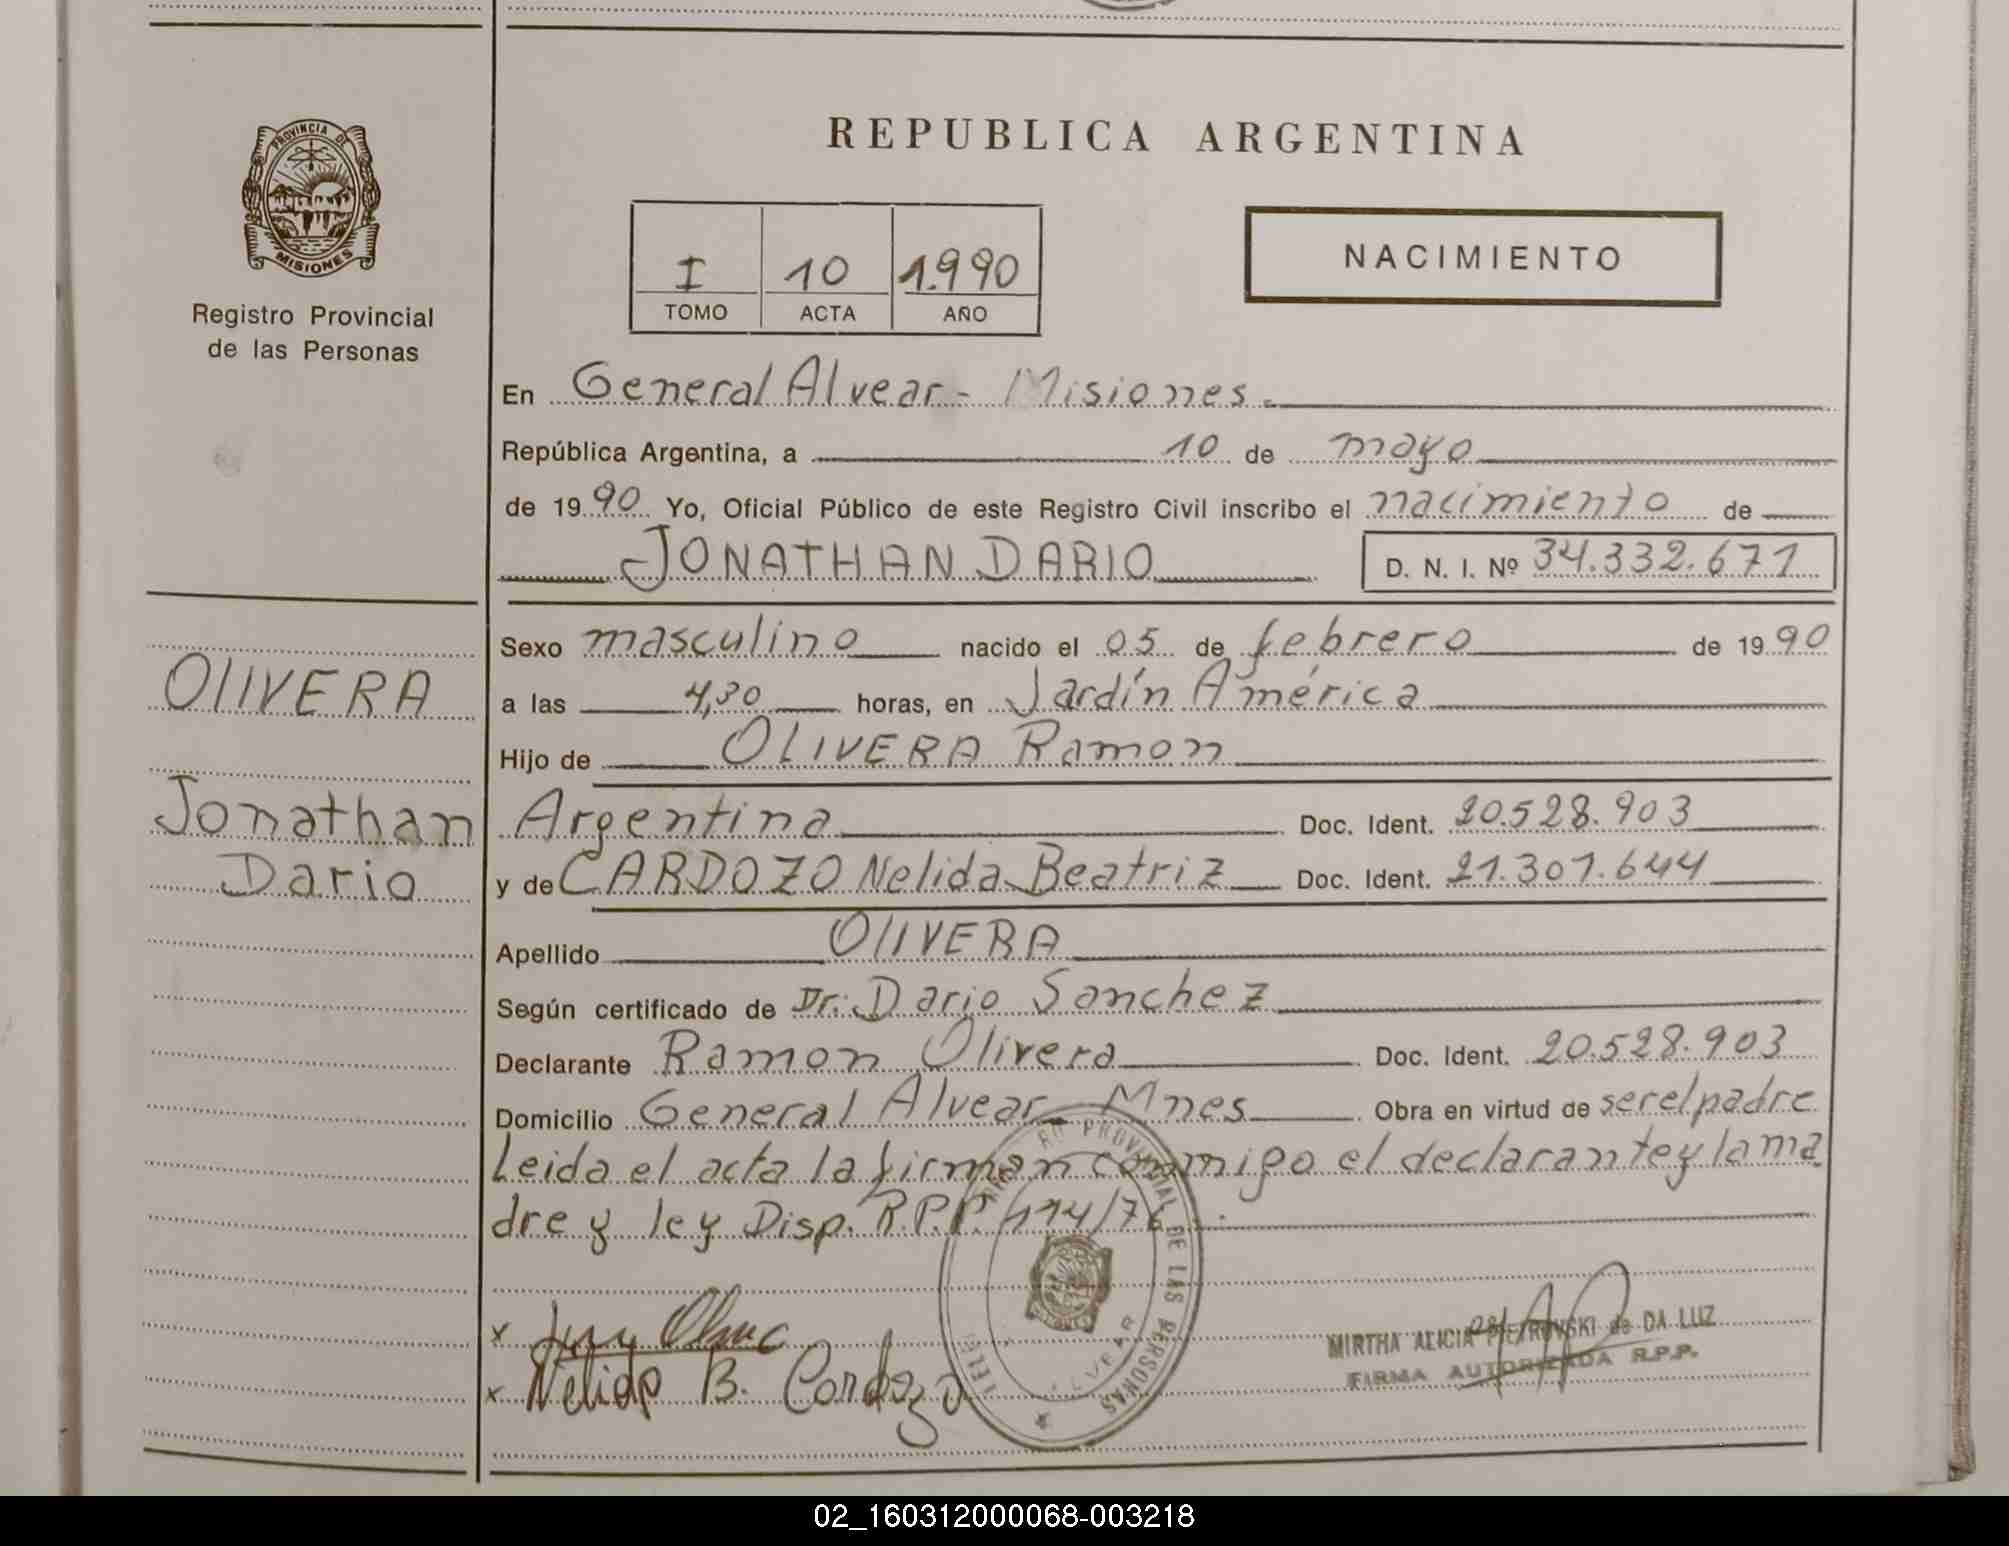 REPUBLICA ARGENTINA
PROVINCIA DE
MISIONES
Registro Provincial
de las Personas
I 10 1.990
TOMO ACTA AÑO
NACIMIENTO
En General Alvear - Misiones.
República Argentina, a 10 de mayo
de 19 90 Yo, Oficial Público de este Registro Civil inscribo el nacimiento de
JONATHAN DARIO D. N. I. Nº 34.332.671
OlIVERA
Jonathan
Dario
Sexo masculino nacido el 05 de febrero de 19 90
a las 4,30 horas, en Jardín América
Hijo de OLIVERA Ramon
Argentina Doc. Ident. 20.528.903
y de CARDOZO Nelida Beatriz Doc. Ident. 21.301.644
Apellido OlIVERA
Según certificado de Dr. Dario Sanchez
Declarante Ramon Olivera Doc. Ident. 20.528.903
Domicilio General Alvear - Mnes Obra en virtud de ser el padre
Leida el acta la firman conmigo el declarante y la ma
dre y ley Disp. R.P.P. 114/76.
PROVINCIAL DE LAS PERSONAS
x
x Nelida B. Cardozo
MIRTHA ALICIA PIETROVSKI de DA LUZ
FIRMA AUTORIZADA R.P.P.
02_160312000068-003218